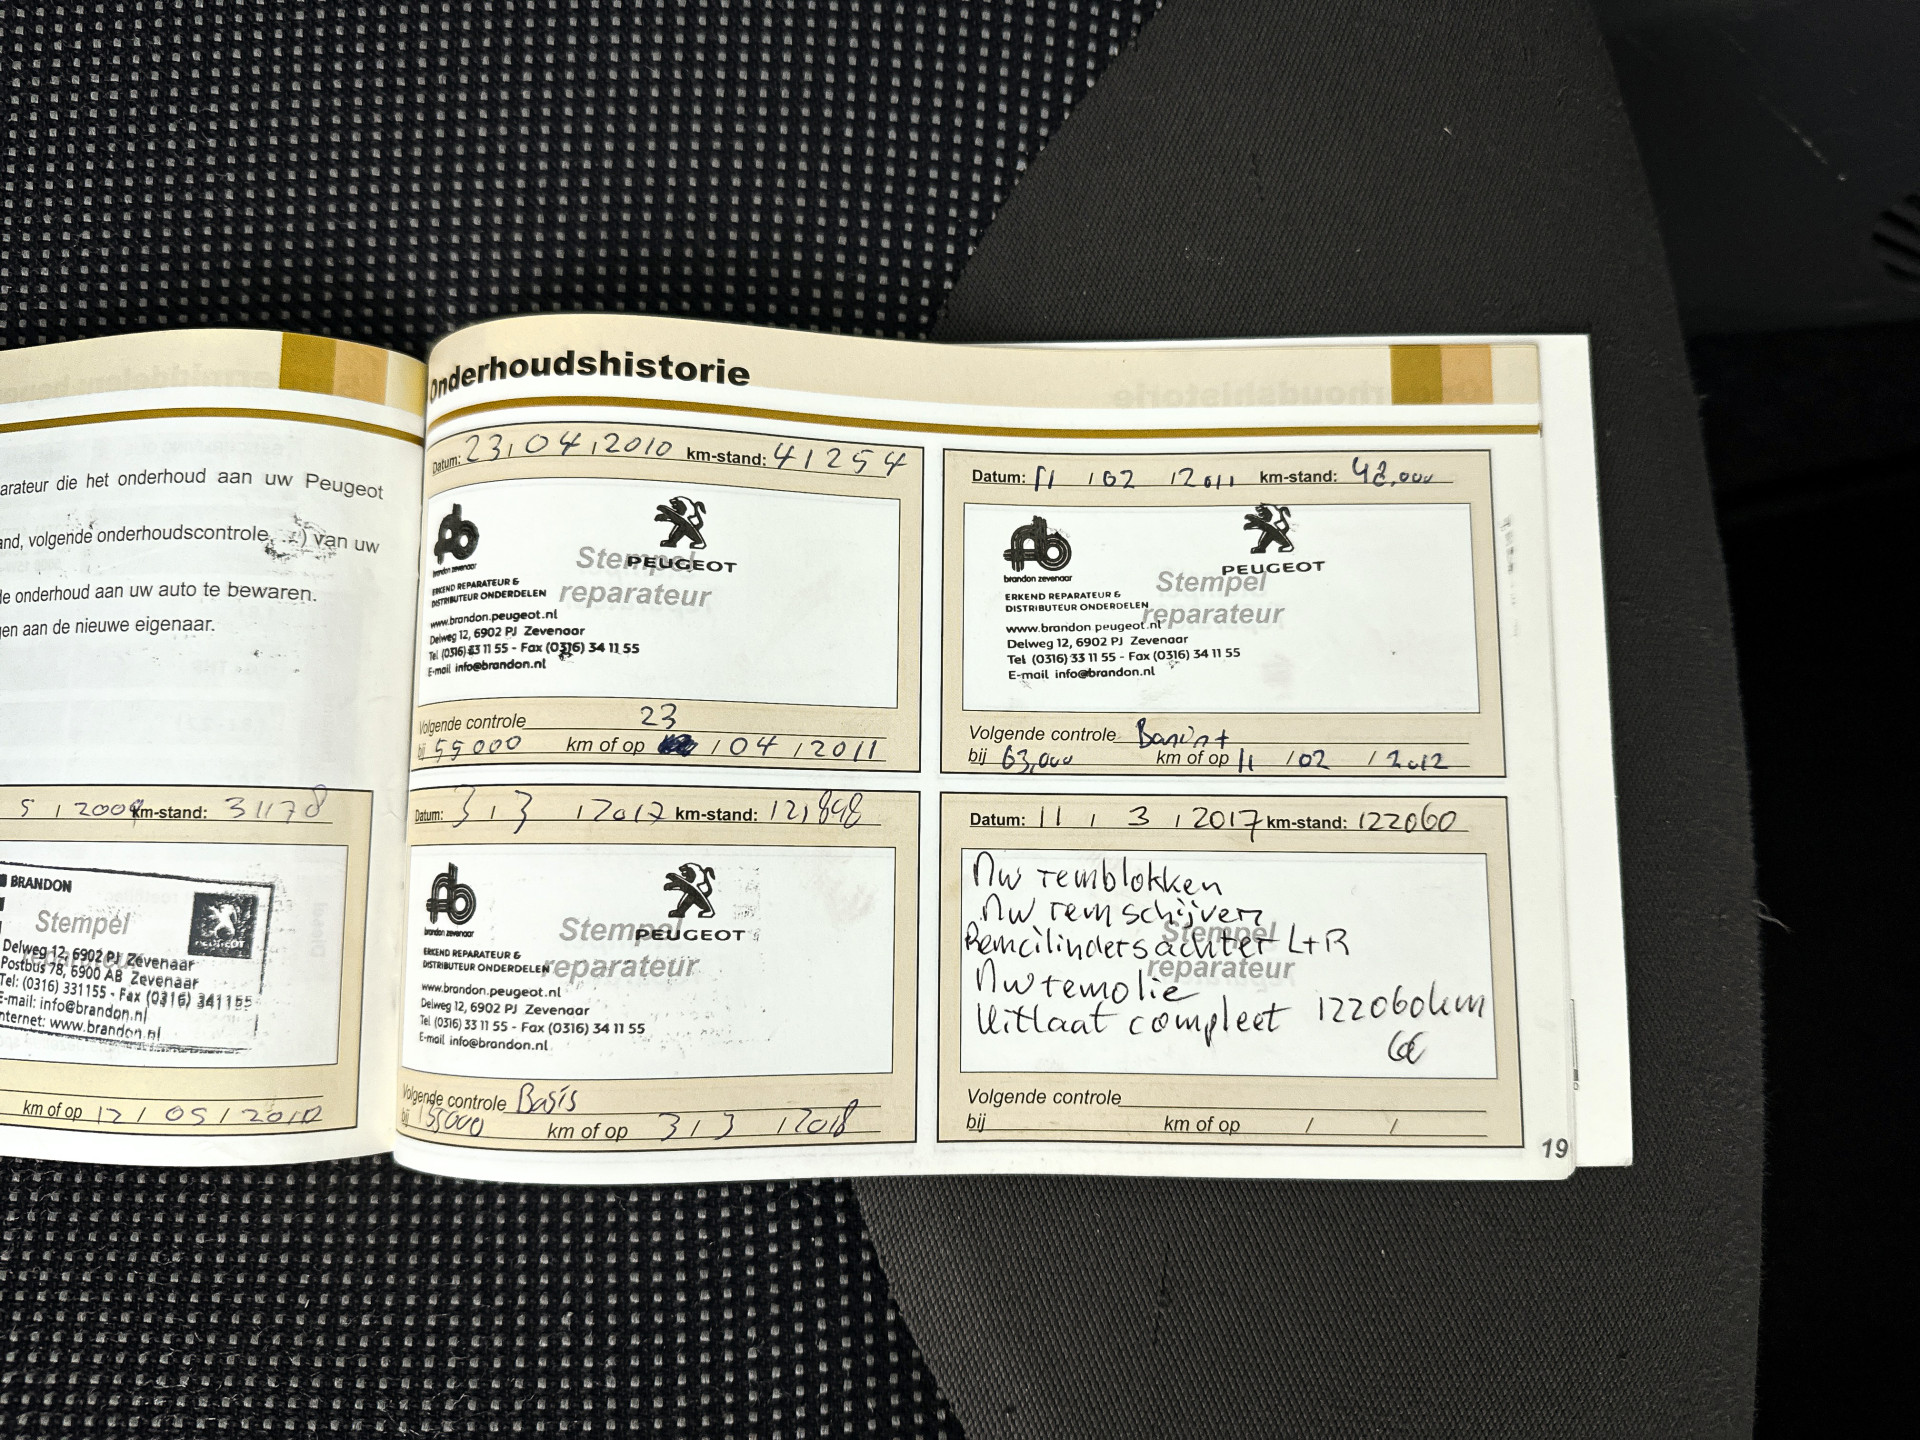 arateur die het onderhoud aan uw Peugeot
and, volgende onderhoudscontrole, ...) van uw
de onderhoud aan uw auto te bewaren.
gen aan de nieuwe eigenaar.
5 / 2009 km-stand: 31178
BRANDON
Stempel
PEUGEOT
Delweg 12, 6902 PJ Zevenaar
Postbus 78, 6900 AB Zevenaar
Tel: (0316) 331155 - Fax (0316) 341155
E-mail: info@brandon.nl
nternet: www.brandon.nl
km of op 12 / 05 / 2010
Onderhoudshistorie
Datum: 23 / 04 / 2010 km-stand: 41254
brandon zevenaar
Stempel
PEUGEOT
reparateur
ERKEND REPARATEUR &
DISTRIBUTEUR ONDERDELEN
www.brandon.peugeot.nl
Delweg 12, 6902 PJ Zevenaar
Tel (0316) 33 11 55 - Fax (0316) 34 11 55
E-mail info@brandon.nl
Volgende controle 23
bij 55000 km of op / 04 / 2011
Datum: 11 / 02 / 2011 km-stand: 48,000
brandon zevenaar
PEUGEOT
Stempel
reparateur
ERKEND REPARATEUR &
DISTRIBUTEUR ONDERDELEN
www.brandon peugeot.nl
Delweg 12, 6902 PJ Zevenaar
Tel (0316) 33 11 55 - Fax (0316) 34 11 55
E-mail info@brandon.nl
Volgende controle
bij 63,000 km of op 11 / 02 / 2012
Datum: 3 / 3 / 2017 km-stand: 121898
brandon zevenaar
Stempel
PEUGEOT
reparateur
ERKEND REPARATEUR &
DISTRIBUTEUR ONDERDELEN
www.brandon.peugeot.nl
Delweg 12, 6902 PJ Zevenaar
Tel (0316) 33 11 55 - Fax (0316) 34 11 55
E-mail info@brandon.nl
Volgende controle Basis
bij 155000 km of op 3 / 3 / 2018
Datum: 11 / 3 / 2017 km-stand: 122060
Nw remblokken
Nw remschijven
Stempel
Remcilinders achter L+R
reparateur
Nw remolie
Uitlaat compleet 122060km
Volgende controle
bij km of op / /
19